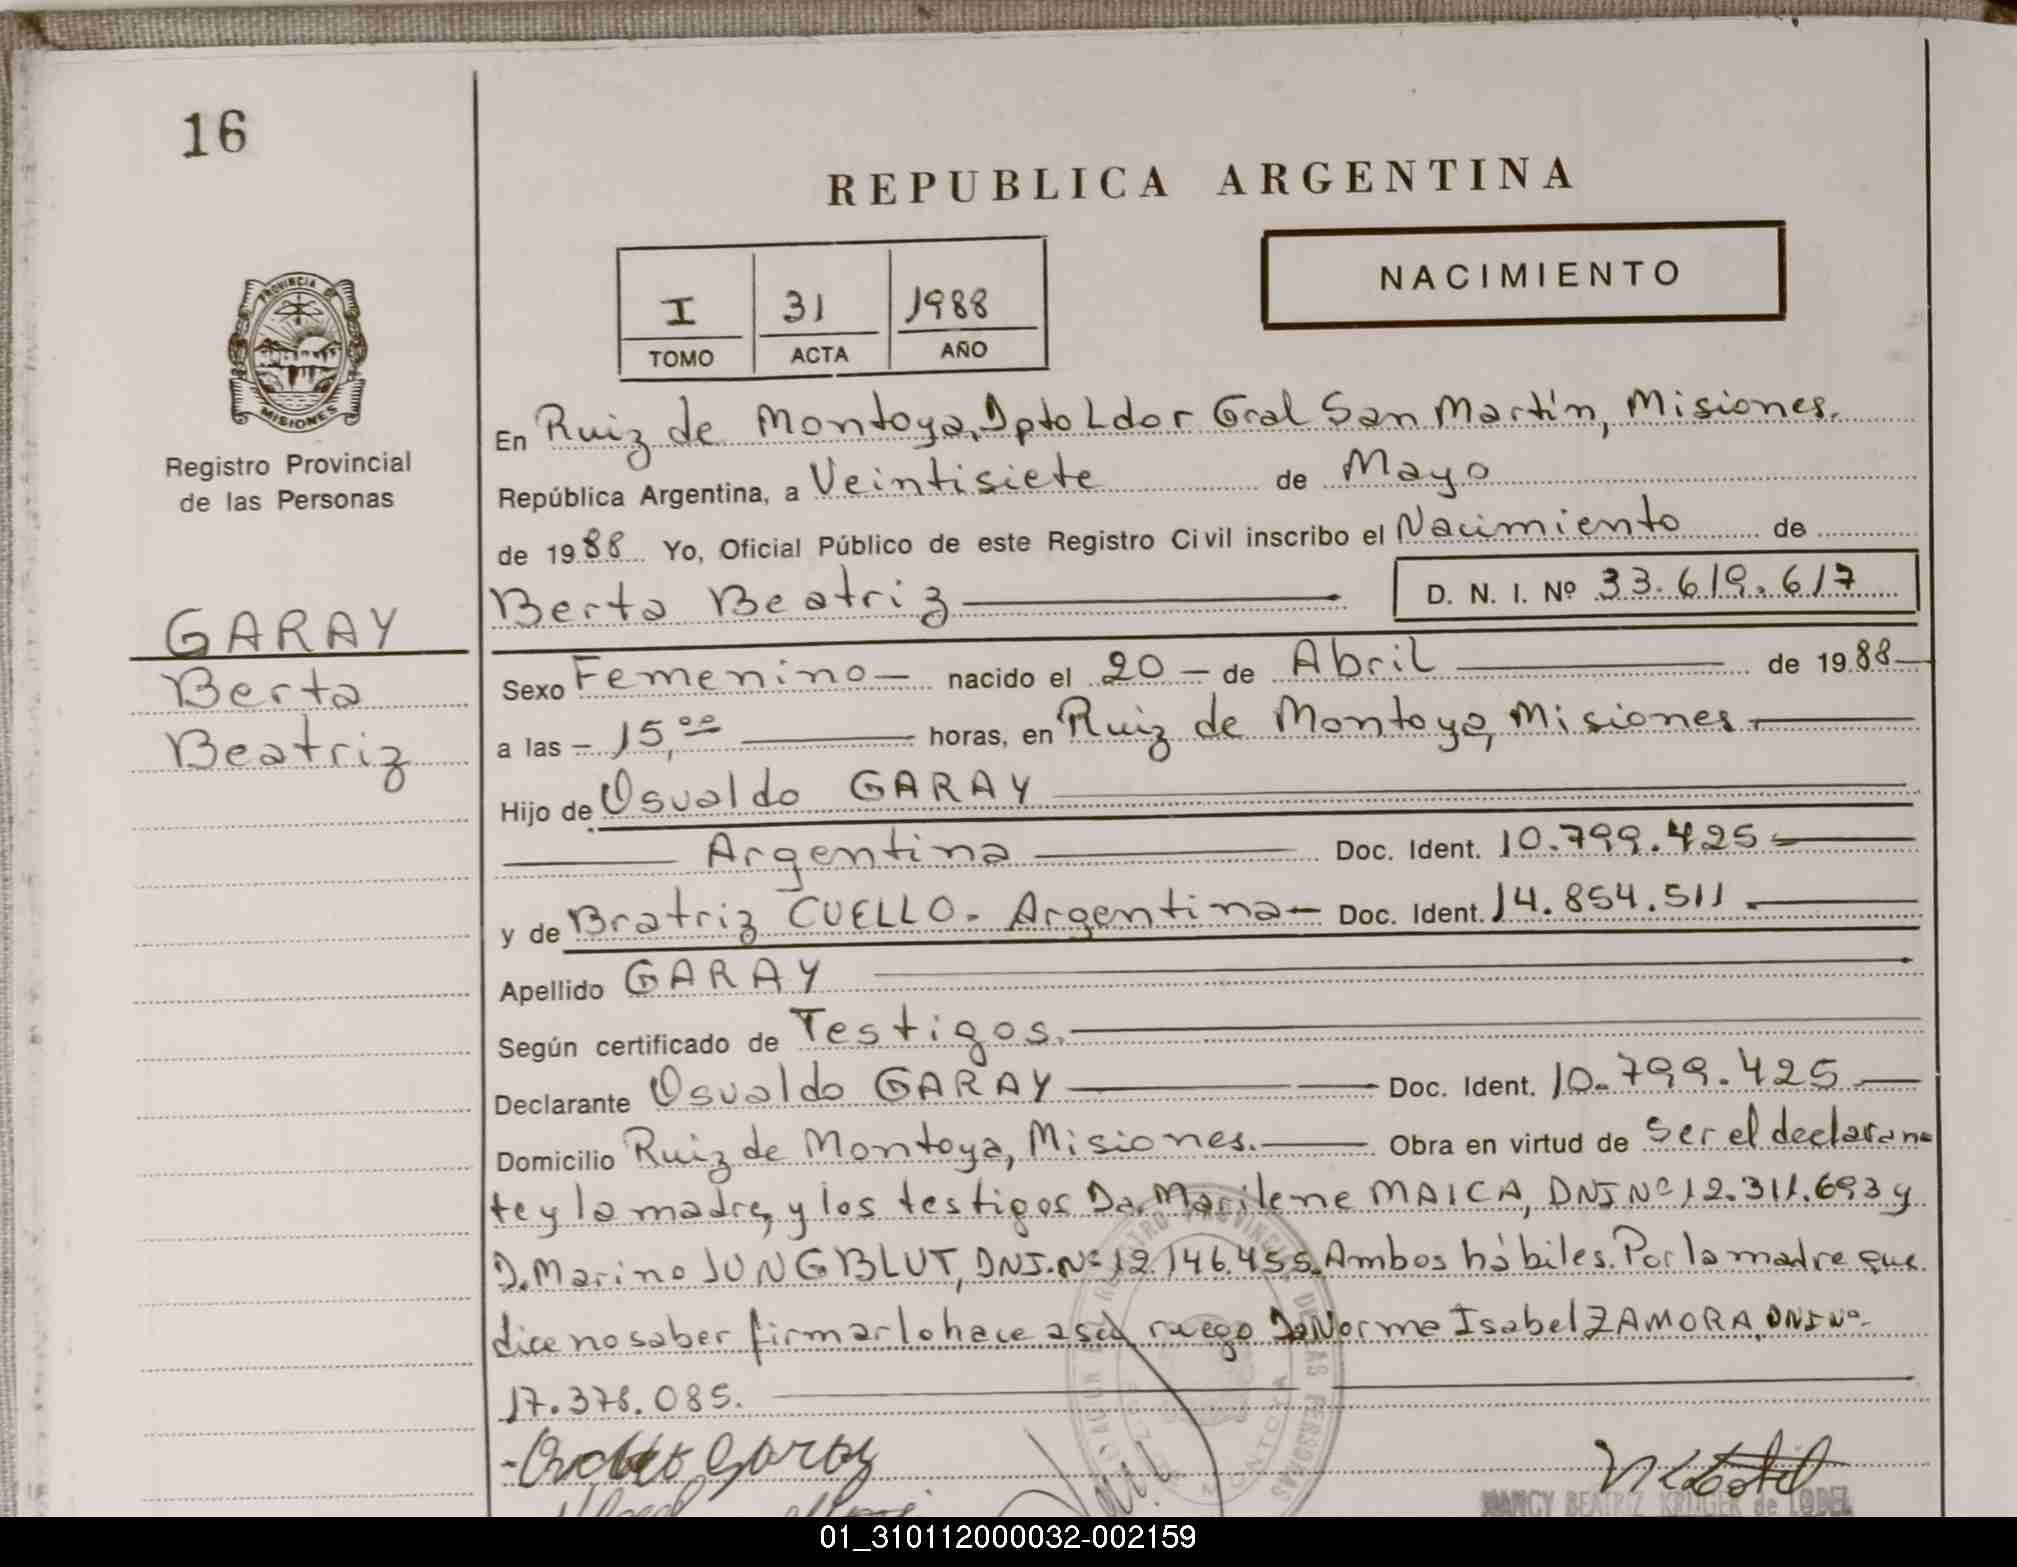 16
REPUBLICA ARGENTINA
I 31 1988
TOMO ACTA AÑO
NACIMIENTO
PROVINCIA DE
MISIONES
Registro Provincial
de las Personas
GARAY
Berta
Beatriz
En Ruiz de Montoya, Dpto Ldor Gral San Martín, Misiones.
República Argentina, a Veintisiete de Mayo
de 1988 Yo, Oficial Público de este Registro Civil inscribo el Nacimiento de
Berta Beatriz D. N. I. Nº 33.619.617
Sexo Femenino nacido el 20 de Abril de 1988
a las 15,ºº horas, en Ruiz de Montoya, Misiones
Hijo de Osvaldo GARAY
Argentina Doc. Ident. 10.799.425
y de Bratriz CUELLO. Argentina Doc. Ident. 14.854.511
Apellido GARAY
Según certificado de Testigos.
Declarante Osvaldo GARAY Doc. Ident. 10.799.425
Domicilio Ruiz de Montoya, Misiones. Obra en virtud de ser el declaran
te y la madre, y los testigos Da. Marilene MAICA, DNI Nº 12.311.693 y
D. Marino JUNGBLUT, DNI. Nº 12.146.455. Ambos hábiles. Por la madre que
dice no saber firmar lo hace a su ruego Da Norma Isabel ZAMORA, DNI Nº
17.378.085.
Garay
NANCY BEATRIZ KRUGER de LODEL
01_310112000032-002159